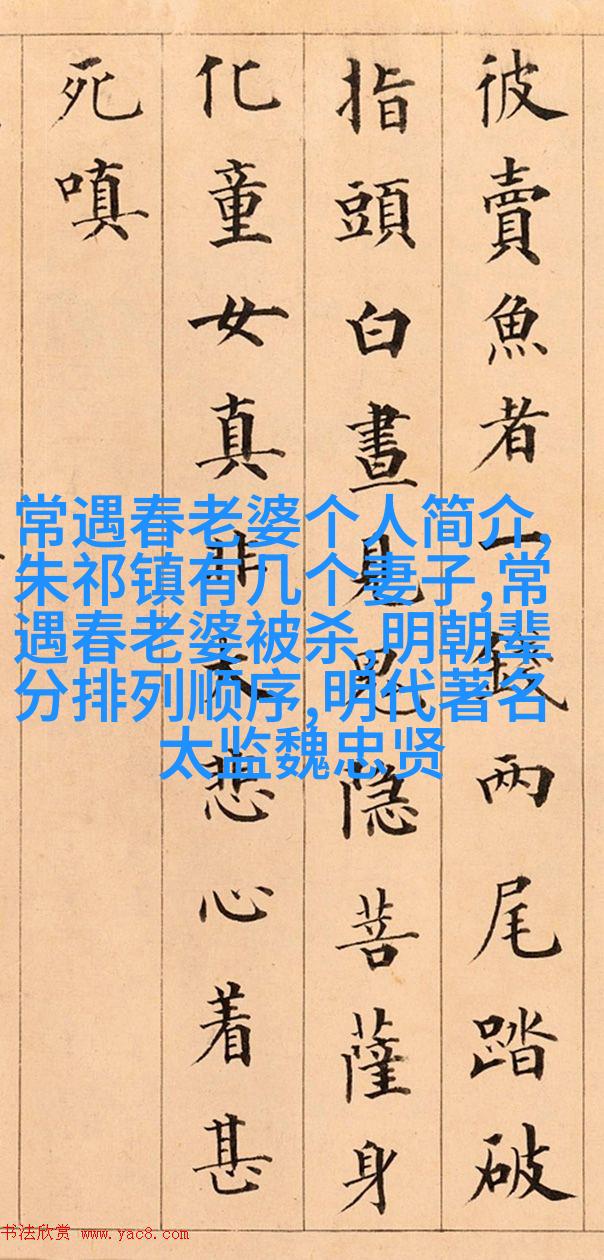 彼賣魚者一錢兩尾踏破
指頭白晝見鬼隐菩薩身
化童女真非大悲心着甚
死嗔
常遇春老婆个人简介,
朱祁镇有几个妻子,常
遇春老婆被杀,明朝辈
分排列顺序,明代著名
太监魏忠贤
书法欣赏 www.yac8.com